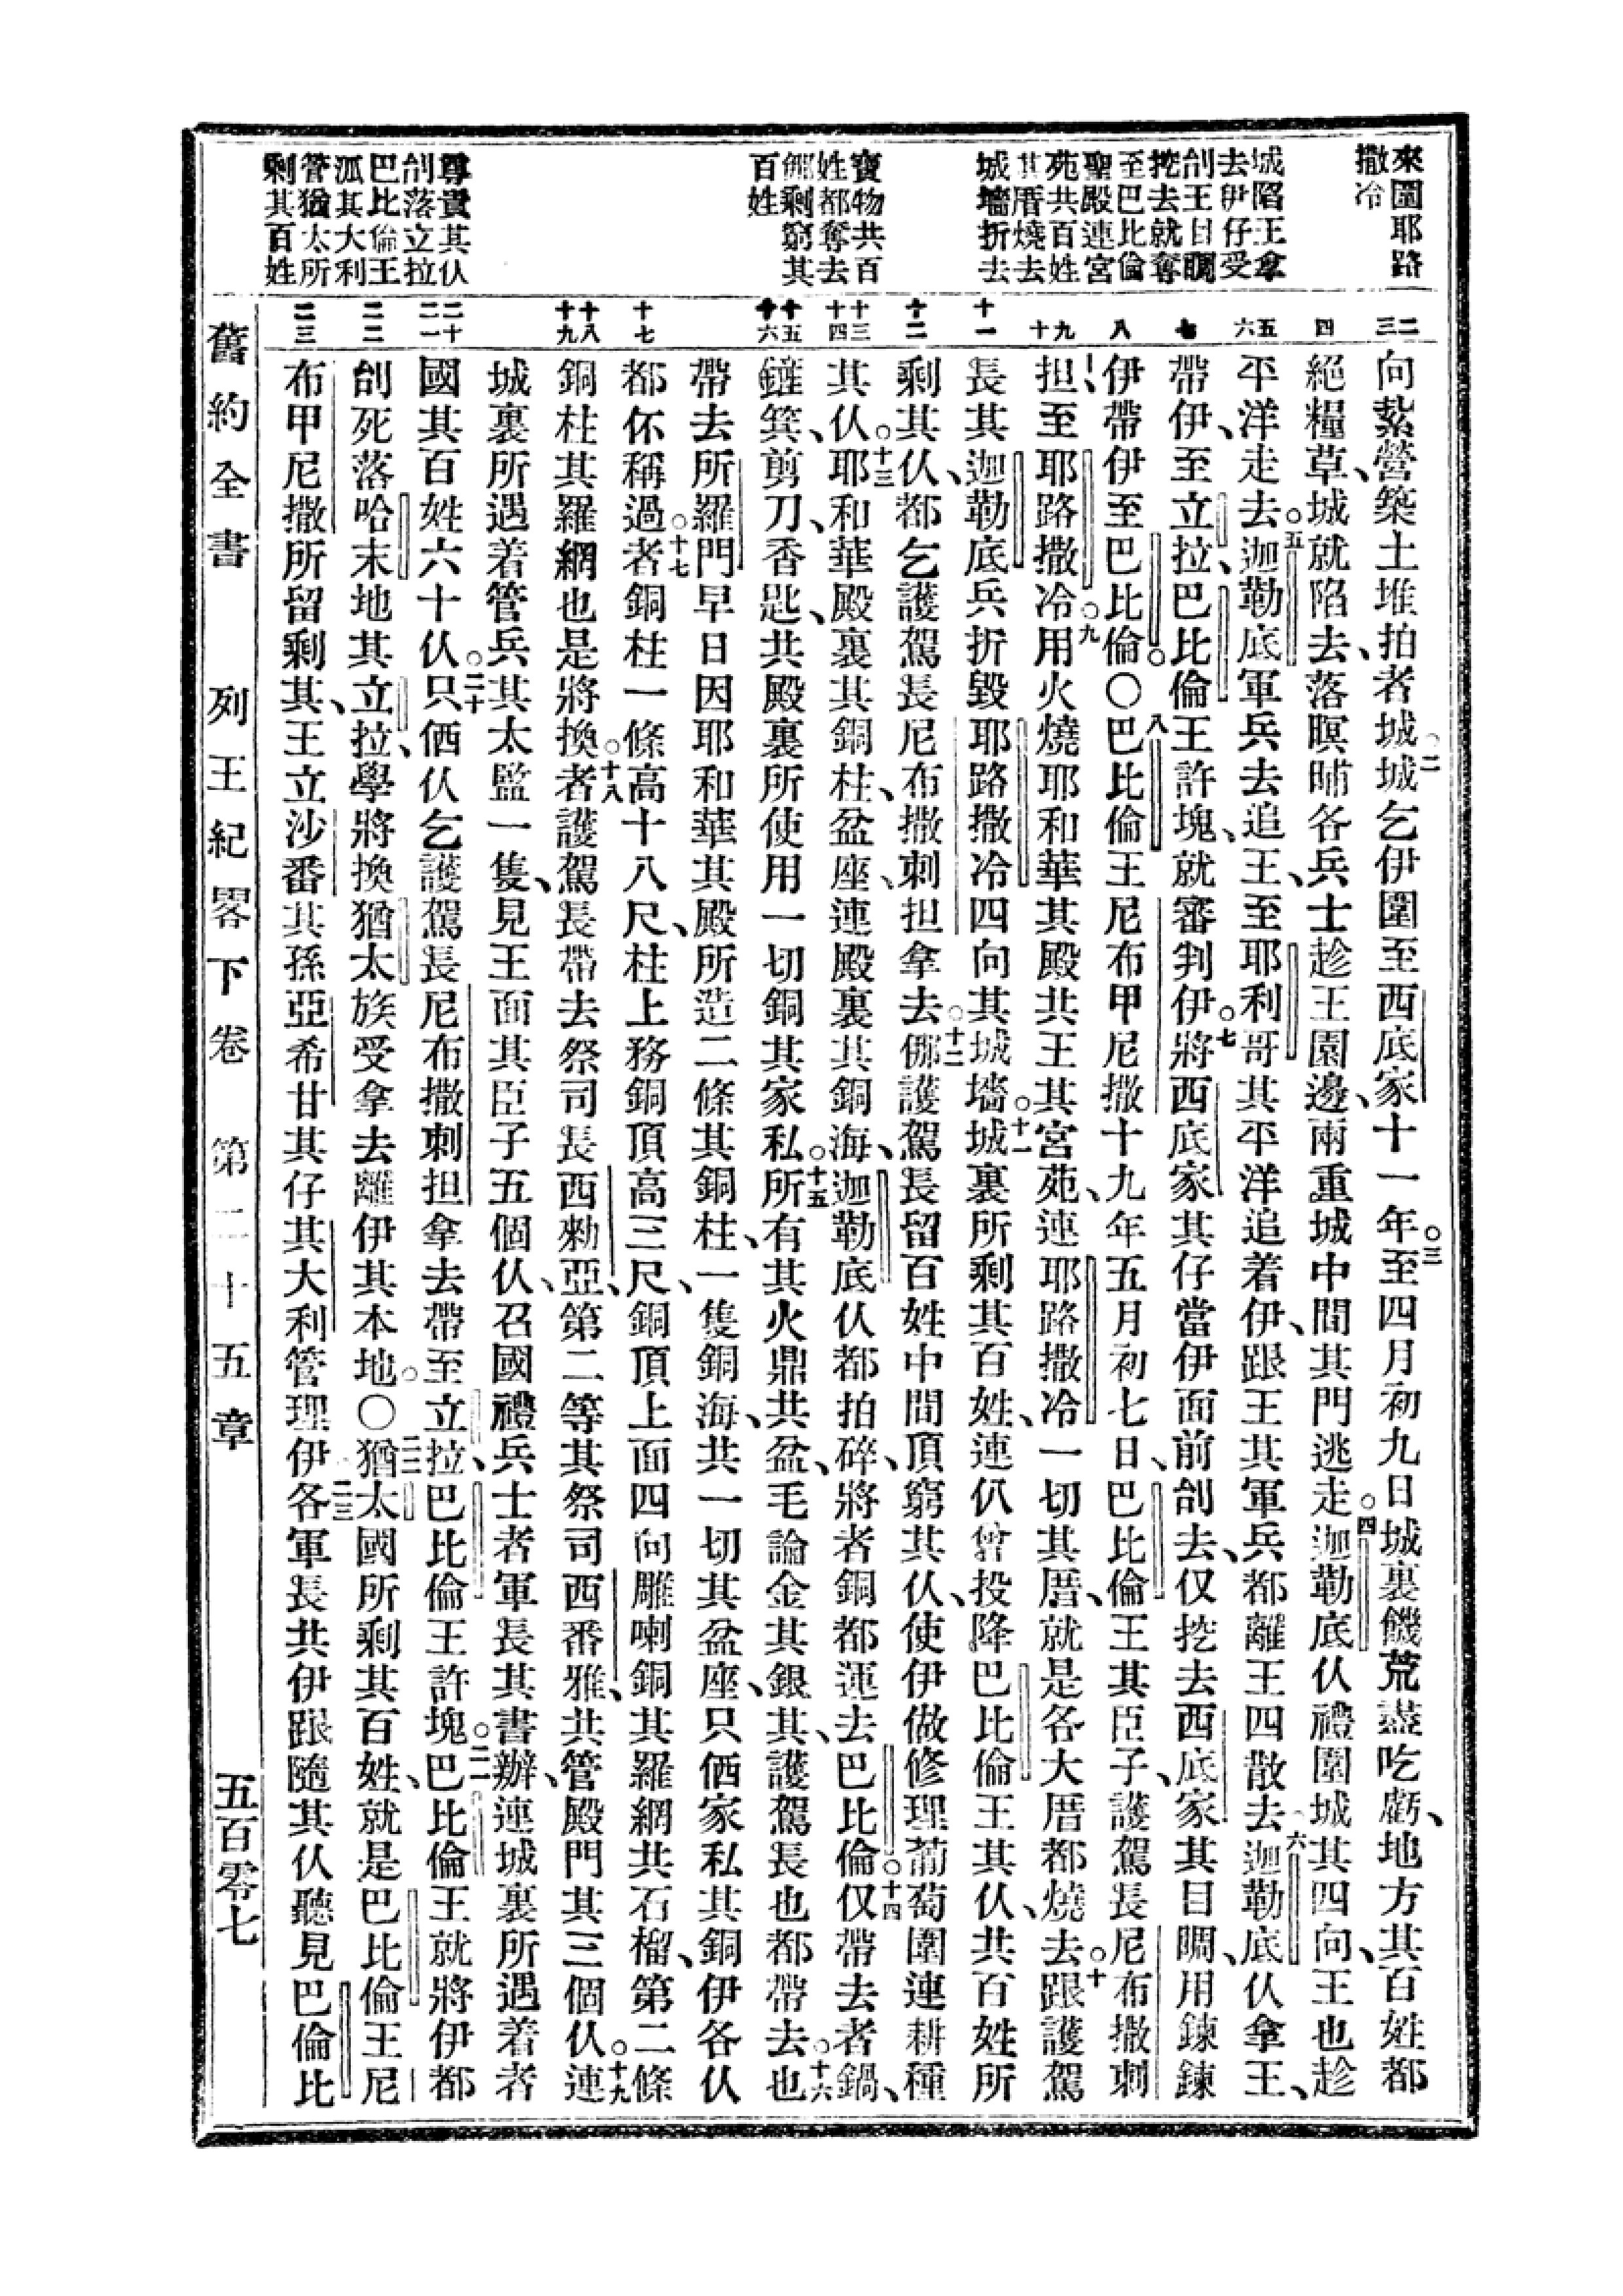 來圍耶路
撒冷
城陷王拿
去伊仔受
刣王目睭
挖去就奪
至巴比倫
聖殿連宮
苑共百姓
其厝燒去
城墻折去
寶物共百
姓都奪去
㑚剩窮其
百姓
尊貴其仈
刣落立拉
巴比倫王
派其大利
管猶太所
剩其百姓
二
三
四
五
六
七
八
九
十
十一
十二
十三
十四
十五
十六
十七
十八
十九
二十
二一
二二
二三
向紮營、築土堆拍者城。二城乞伊圍至西底家十一年。三至四月初九日城裏饑荒盡吃虧、地方其百姓都
絕糧草、城就陷去、落暝晡各兵士趁王園邊、兩重城中間其門逃走。四迦勒底仈禮圍城其四向、王也趁
平洋走去。五迦勒底軍兵去追王、至耶利哥其平洋追着伊、跟王其軍兵都離王四散去。六迦勒底仈拿王、
帶伊、至立拉、巴比倫王許塊、就審判伊。七將西底家其仔當伊面前刣去、仅挖去西底家其目睭、用鍊鍊
伊帶伊至巴比倫。〇八巴比倫王尼布甲尼撒十九年五月初七日、巴比倫王其臣子、護駕長尼布撒刺
担、至耶路撒冷。九用火燒耶和華其殿共王其宮苑、連耶路撒冷一切其厝、就是各大厝都燒去。十跟護駕
長其迦勒底兵折毀耶路撒冷四向其城墻。十一城裏所剩其百姓、連仈曾投降巴比倫王其仈、共百姓所
剩其仈、都乞護駕長尼布撒刺担拿去。十二㑚護駕長留百姓中間頂窮其仈、使伊做修理葡萄園連耕種
其仈。十三耶和華殿裏其銅柱、盆座、連殿裏其銅海、迦勒底仈都拍碎、將者銅都運去巴比倫。十四仅帶去者鍋、
鏟箕、剪刀、香匙、共殿裏所使用一切銅其家私。十五所有其火鼎共盆、毛論金其銀其、護駕長也都帶去。十六也
帶去所羅門早日因耶和華其殿所造二條其銅柱、一隻銅海、共一切其盆座、只俩家私其銅伊各仈
都伓稱過。十七者銅柱一條高十八尺、柱上務銅頂高三尺、銅頂上面四向雕喇銅其羅網共石榴、第二條
銅柱其羅網也是將換。十八者護駕長帶去祭司長西勑亞、第二等其祭司西番雅、共管殿門其三個仈。十九連
城裏所遇着管兵其太監一隻、見王面其臣子五個仈、召國禮兵士者軍長其書辦、連城裏所遇着者
國其百姓六十仈。二十只俩仈乞護駕長尼布撒刺担拿去帶至立拉、巴比倫王許塊。二一巴比倫王就將伊都
刣死落哈末地其立拉、學將換猶太族受拿去離伊其本地。〇二二猶太國所剩其百姓、就是巴比倫王尼
布甲尼撒所留剩其、王立沙番其孫亞希甘其仔其大利管理伊。二三各軍長共伊跟隨其仈聽見巴倫比
舊約全書　列王紀畧下卷　第二十五章　五百零七